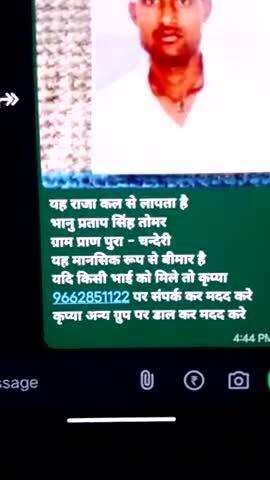 यह राजा कल से लापता है
भानु प्रताप सिंह तोमर
ग्राम प्राण पुरा - चन्देरी
यह मानसिक रूप से बीमार है
यदि किसी भाई को मिले तो कृप्या
9662851122 पर संपर्क कर मदद करे
कृप्या अन्य ग्रुप पर डाल कर मदद करे
4:44 PM
ssage